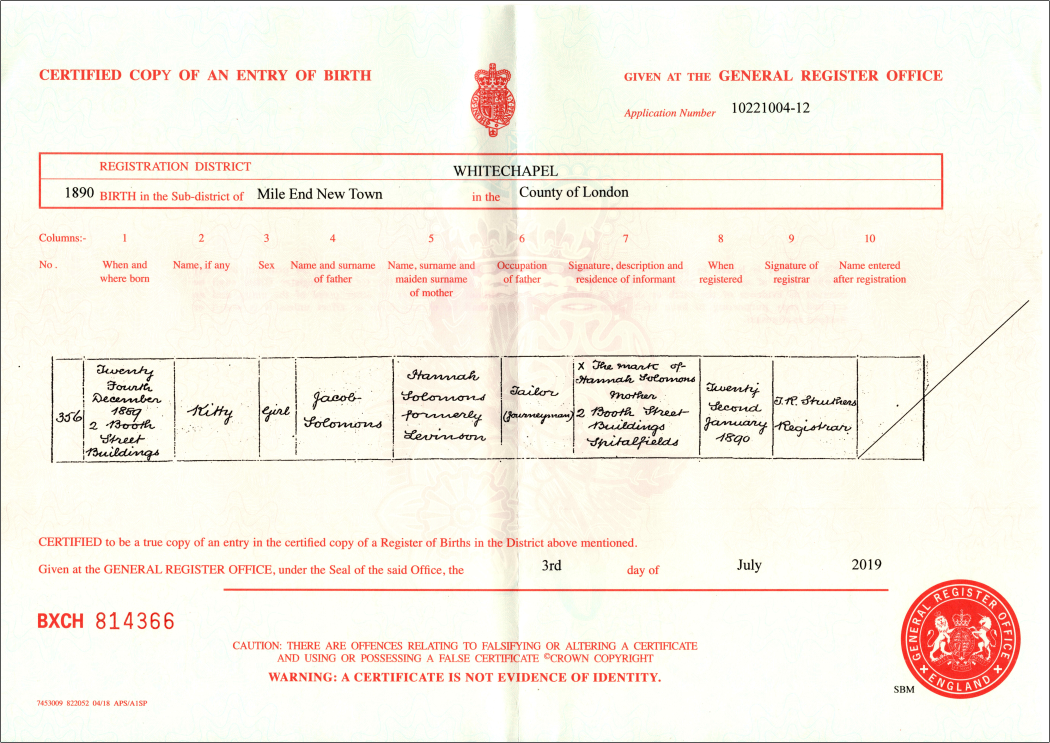 CERTIFIED COPY OF AN ENTRY OF BIRTH
GIVEN AT THE GENERAL REGISTER OFFICE
Application Number 10221004-12
REGISTRATION DISTRICT WHITECHAPEL
1890 BIRTH in the Sub-district of Mile End New Town in the County of London
Columns:- 1 2 3 4 5 6 7 8 9 10
No. When and where born
Name, if any
Sex
Name and surname of father
Name, surname and maiden surname of mother
Occupation of father
Signature, description and residence of informant
When registered
Signature of registrar
Name entered after registration
356
Twenty
Fourth
December
1889
2 Booth
Street
Buildings
Kitty
Girl
Jacob
Solomons
Hannah
Solomons
formerly
Levinson
Tailor
(Journeyman)
X The mark of
Hannah Solomons
Mother
2 Booth Street
Buildings
Spitalfields
Twenty
Second
January
1890
J.R. Struthers
Registrar
CERTIFIED to be a true copy of an entry in the certified copy of a Register of Births in the District above mentioned.
Given at the GENERAL REGISTER OFFICE, under the Seal of the said Office, the 3rd day of July 2019
BXCH 814366
CAUTION: THERE ARE OFFENCES RELATING TO FALSIFYING OR ALTERING A CERTIFICATE
AND USING OR POSSESSING A FALSE CERTIFICATE ©CROWN COPYRIGHT
WARNING: A CERTIFICATE IS NOT EVIDENCE OF IDENTITY.
GENERAL REGISTER OFFICE
ENGLAND
SBM
7453009 822052 04/18 APS/A1SP